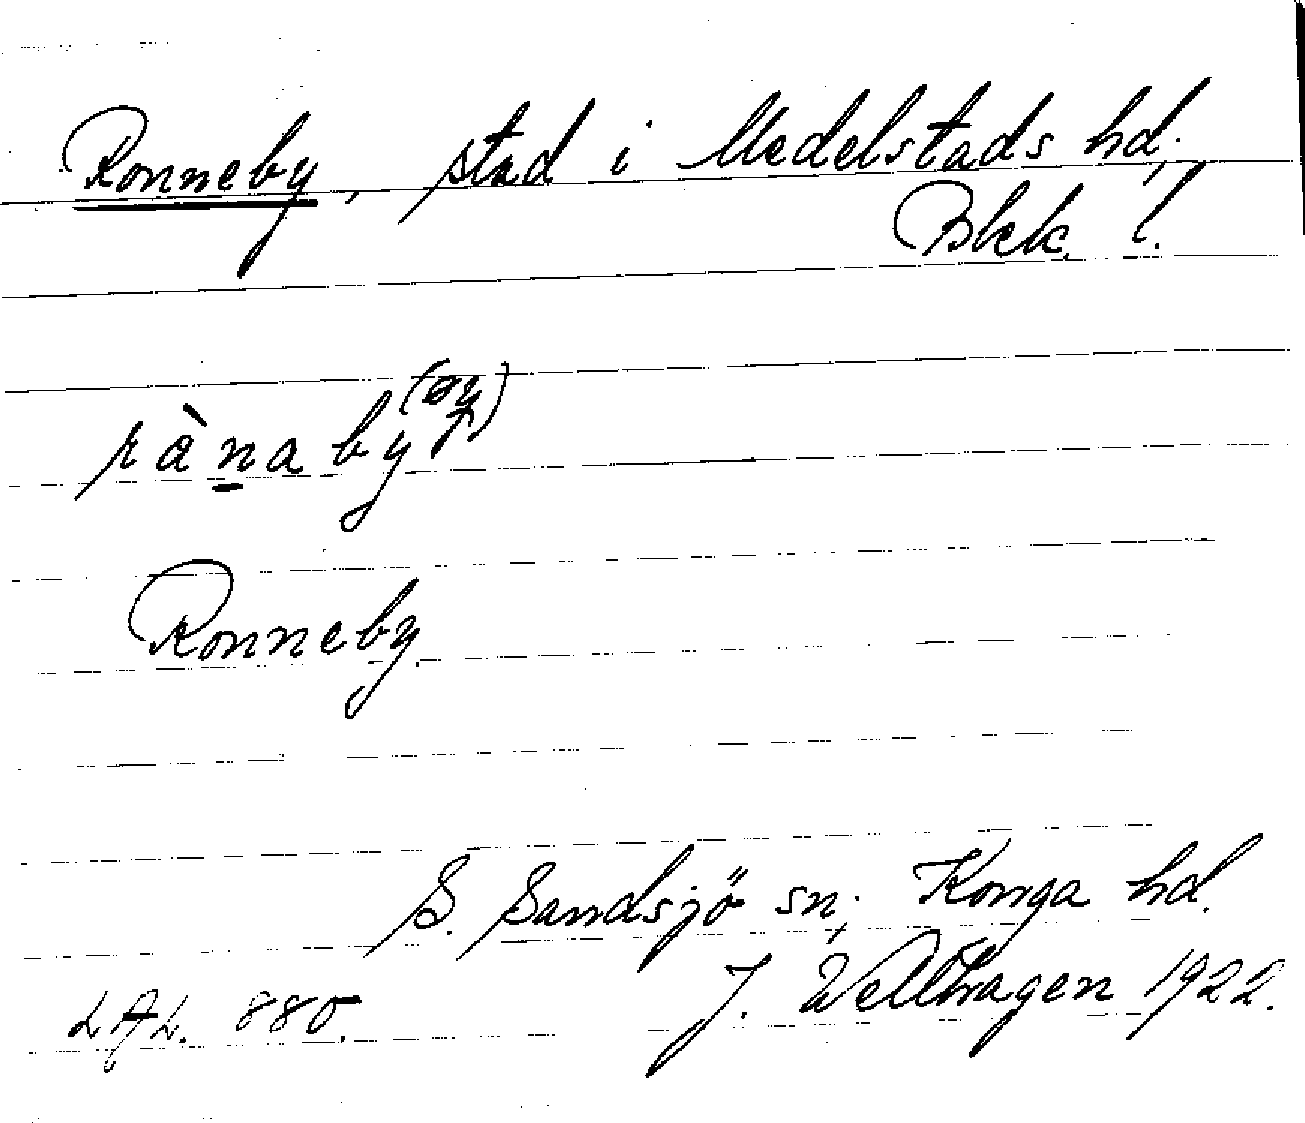 Ronneby, stad i Medelstads hd;
Blek. l.
rànaby
Ronneby
S. Sandsjö sn; Konga hd.
LAL. 880. J. Wellhagen 1922.